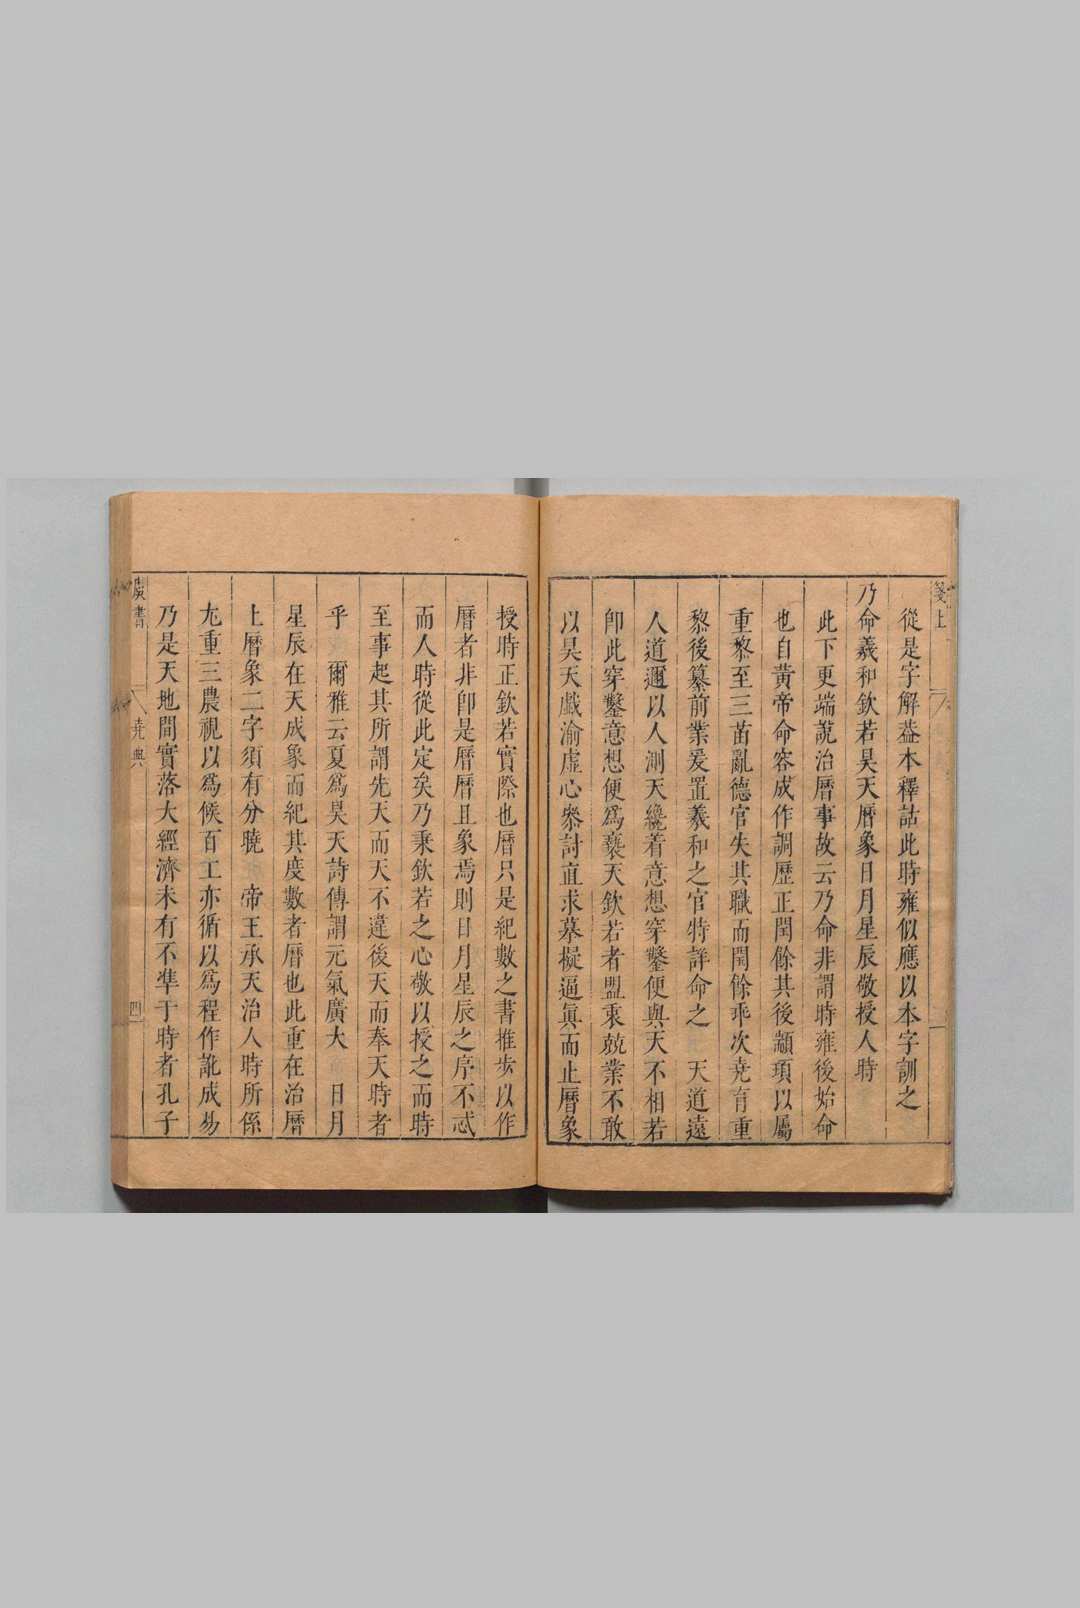 箋上
從是字解益本釋詁此時雍似應以本字訓之
乃命羲和欽若昊天曆象日月星辰敬授人時
此下更端說治曆事故云乃命非謂時雍後始命
也自黃帝命容成作調歷正閏餘其後顓頊以屬
重黎至三苗亂德官失其職而閏餘乖次堯育重
黎後纂前業爰置羲和之官特詳命之 天道遠
人道邇以人測天纔着意想穿鑿便與天不相若
卽此穿鑿意想便爲褻天欽若者盟秉兢業不敢
以昊天戲渝虛心叅討直求摹擬逼眞而止曆象
授時正欽若實際也曆只是紀數之書推步以作
曆者非卽是曆曆且象焉則日月星辰之序不忒
而人時從此定矣乃秉欽若之心敬以授之而時
至事起其所謂先天而天不違後天而奉天時者
乎 爾雅云夏爲昊天詩傳謂元氣廣大 日月
星辰在天成象而紀其度數者曆也此重在治曆
上曆象二字須有分曉 帝王承天治人時所係
尢重三農視以爲候百工亦循以爲程作訛成易
乃是天地間實落大經濟未有不準于時者孔子
虞書
堯典
四